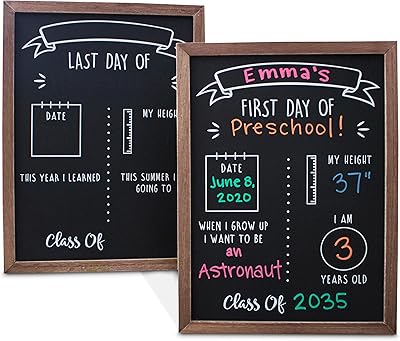 LAST DAY OF
DATE
MY HEIGHT
THIS YEAR I LEARNED
THIS SUMMER I
GOING TO
Class Of
Emma's
FIRST DAY OF
Preschool!
DATE
June 8,
2020
MY HEIGHT
37"
WHEN I GROW UP
I WANT TO BE
an
Astronaut
I AM
3
YEARS OLD
Class Of 2035